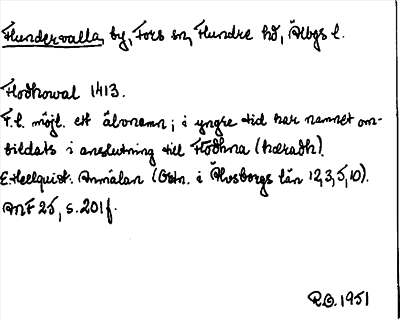 Flundervalla, by, Fors sn, Flundre hd, Älvbgs l.
Flodhowal 1413.
F.l. möjl. ett älvnamn; i yngre tid har namnet om-
bildats i anslutning till Flodhna (hæradh).
E. Hellquist. Anmälan (Ortn. i Älvsborgs län 12, 3, 5, 10).
ANF 25, s. 201 f.
R.O. 1951